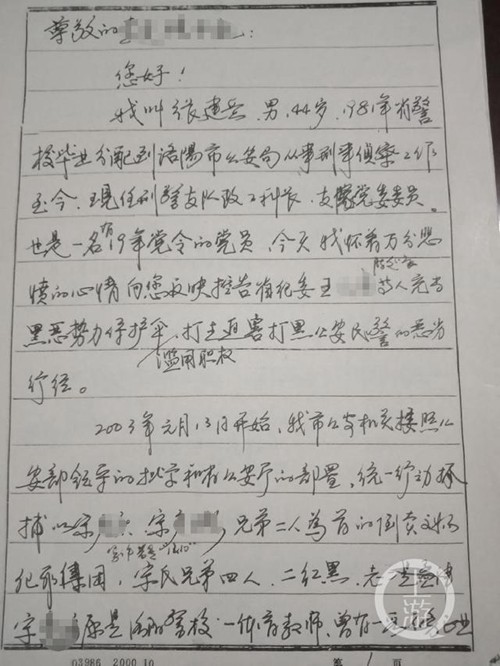 尊敬的
您好！
我叫张建 男，44岁，1981年省警
校毕业分配到洛阳市公安局从事刑事侦察工作
至今，现任刑警支队政工科长、支队党委委员。
也是一名有19年党令的党员，今天我怀着万分悲
愤的心情向您反映控告省纪委王 等人充当
黑恶势力保护伞，滥用职权打击迫害打黑公安民警的恶劣
行径。
2003年元月13日开始，我市公安机关按照公
安部领导的批示和省公安厅的部署，统一行动抓
捕以宋 、宋 兄弟二人为首的倒卖文物
犯罪集团，宋氏兄弟四人，二红黑，老
宋 原是洛阳 校一体育教师，曾有一 业
03986 2000.10 第 1 页
上游